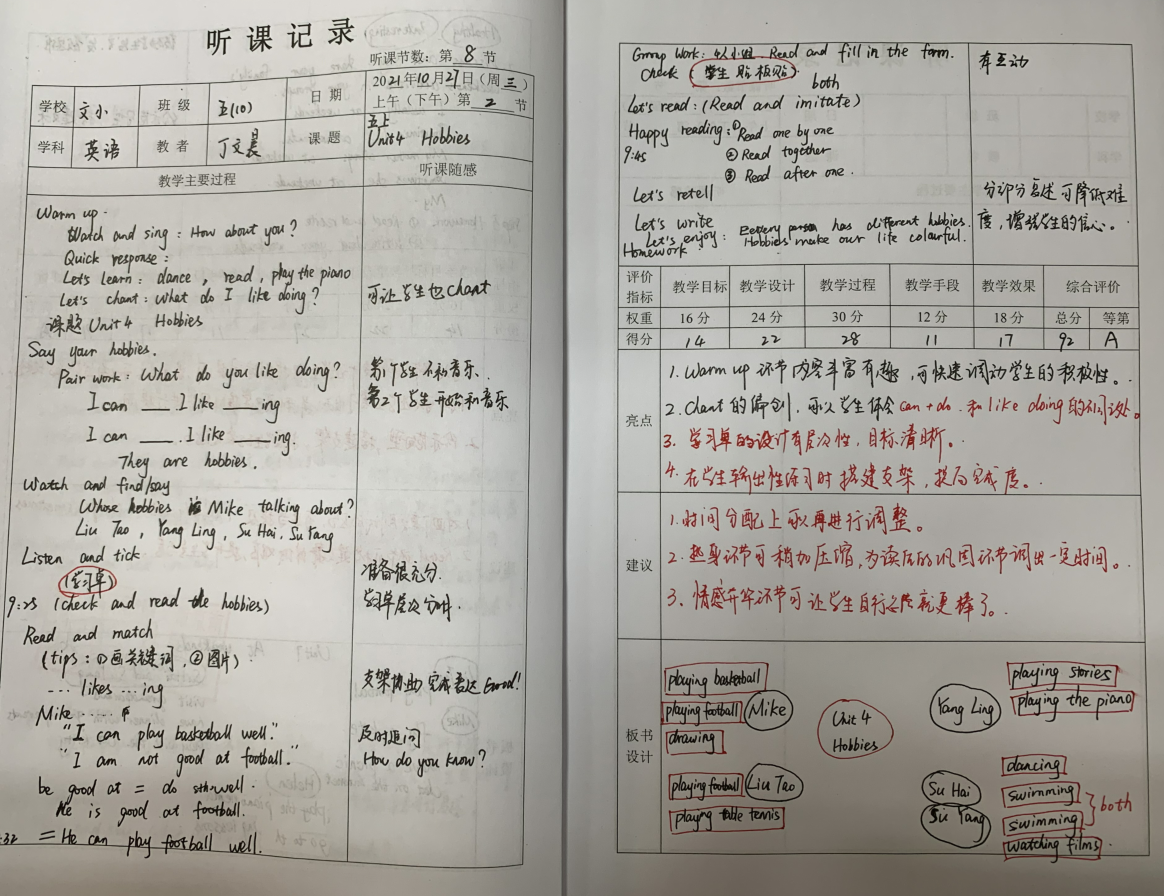 听课记录
听课节数：第 8 节
学校 文小 班级 五(10) 日期 2021年10月27日（周三）
上午（下午）第 2 节
学科 英语 教者 丁文晨 课题 五上
Unit4 Hobbies
教学主要过程 听课随感
Warm up.
Watch and sing : How about you?
Quick response :
Let's learn : dance , read , play the piano
Let's chant : What do I like doing? 可让学生也chant
课题 Unit 4 Hobbies
Say your hobbies.
Pair work : What do you like doing? 第1个学生不和音乐、
I can ___ I like ___ing 第2个学生开始和音乐
I can ___ . I like ___ing.
They are hobbies.
Watch and find/say
Whose hobbies is Mike talking about?
Liu Tao , Yang Ling , Su Hai , Su Yang
Listen and tick
(学习单) 准备很充分.
9:25 (check and read the hobbies) 学习单层次分明.
Read and match
(tips : ①画关键词 , ②图片) .
... likes ... ing 支架协助 完成表达 Good!
Mike ......
"I can play basketball well." 及时追问
"I am not good at football." How do you know?
be good at = do sth well .
He is good at football.
:32 = He can play football well.
Group Work : 4人小组 Read and fill in the form.
Check (学生贴板贴) . 有互动
both
Let's read : (Read and imitate)
Happy reading : ① Read one by one
9:45 ② Read together
③ Read after one .
Let's retell 分部分复述可降低难
Let's write 度，增强学生的信心。
Let's enjoy : Every person has different hobbies.
Hobbies make our life colourful.
Homework :
评价指标 教学目标 教学设计 教学过程 教学手段 教学效果 综合评价
权重 16分 24分 30分 12分 18分 总分 等第
得分 14 22 28 11 17 92 A
亮点
1. Warm up 环节内容丰富有趣，可快速调动学生的积极性。
2. Chant 的编创，可以学生体会 can + do 和 like doing 的不同之处。
3. 学习单的设计有层次性，目标清晰。
4. 在学生输出性练习时搭建支架，提高完成度。
建议
1. 时间分配上可以再进行调整。
2. 热身环节可稍加压缩，为读后的巩固环节调出一定时间。
3、情感升华环节可让学生自行总结就更棒了。
板书设计
playing basketball
playing football Mike
drawing
playing football Liu Tao
playing table tennis
Unit 4
Hobbies
Yang Ling
playing stories
playing the piano
Su Hai
Su Yang
dancing
swimming
swimming
both
watching films